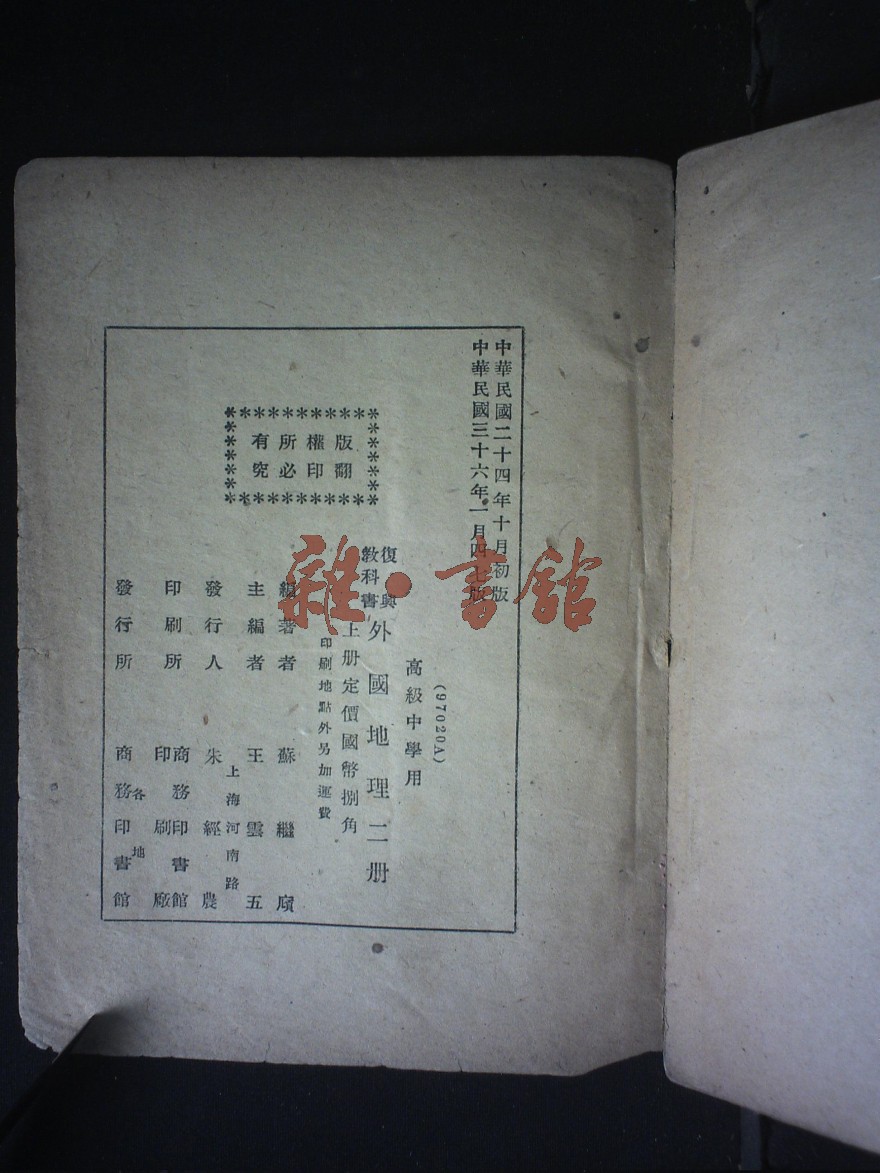 中華民國二十四年十月初版
中華民國三十六年一月四七版
(97020A)
高級中學用
復興教科書 外國地理二册
上册定價國幣捌角
印刷地點外另加運費
版權所有
翻印必究
編著者 蘇繼廎
主編者 王雲五
上海河南路
發行人 朱經農
印刷所 商務印書館印刷廠
各地
發行所 商務印書館
雜·書館